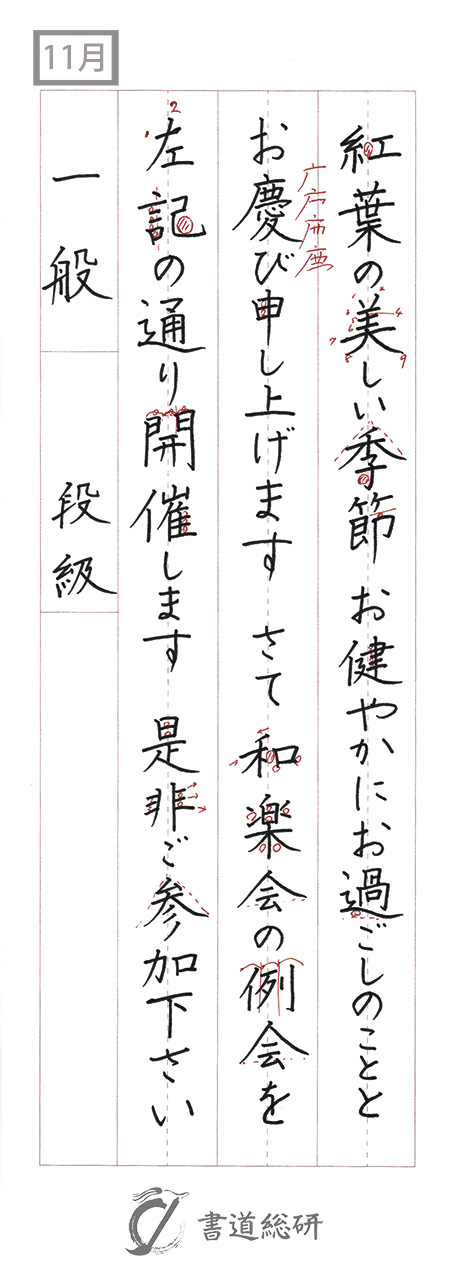 11月
紅葉の美しい季節 お健やかにお過ごしのことと
お慶び申し上げます さて 和楽会の例会を
左記の通り開催します 是非ご参加下さい
一般 段級
書道総研